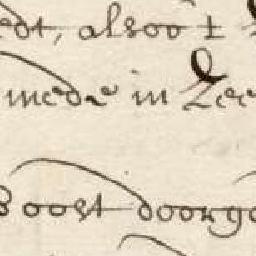 edt, alsoo t
mede in Zee
oost doorgo